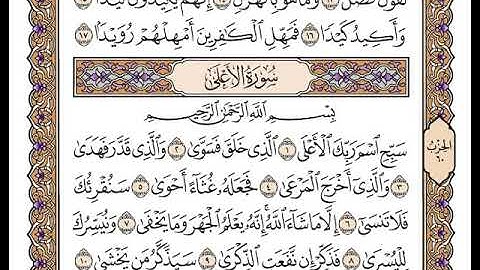 لَقَوْلٌ فَصْلٌ ١٣ وَمَا هُوَ بِٱلْهَزْلِ ١٤ إِنَّهُمْ يَكِيدُونَ كَيْدًا ١٥
وَأَكِيدُ كَيْدًا ١٦ فَمَهِّلِ ٱلْكَٰفِرِينَ أَمْهِلْهُمْ رُوَيْدًۢا ١٧
سُورَةُ الأَعْلَىٰ
بِسْمِ ٱللَّهِ ٱلرَّحْمَٰنِ ٱلرَّحِيمِ
سَبِّحِ ٱسْمَ رَبِّكَ ٱلْأَعْلَى ١ ٱلَّذِى خَلَقَ فَسَوَّىٰ ٢ وَٱلَّذِى قَدَّرَ فَهَدَىٰ
٣ وَٱلَّذِىٓ أَخْرَجَ ٱلْمَرْعَىٰ ٤ فَجَعَلَهُۥ غُثَآءً أَحْوَىٰ ٥ سَنُقْرِئُكَ
فَلَا تَنسَىٰٓ ٦ إِلَّا مَا شَآءَ ٱللَّهُ ۚ إِنَّهُۥ يَعْلَمُ ٱلْجَهْرَ وَمَا يَخْفَىٰ ٧ وَنُيَسِّرُكَ
لِلْيُسْرَىٰ ٨ فَذَكِّرْ إِن نَّفَعَتِ ٱلذِّكْرَىٰ ٩ سَيَذَّكَّرُ مَن يَخْشَىٰ ١٠
الحزب
٦٠